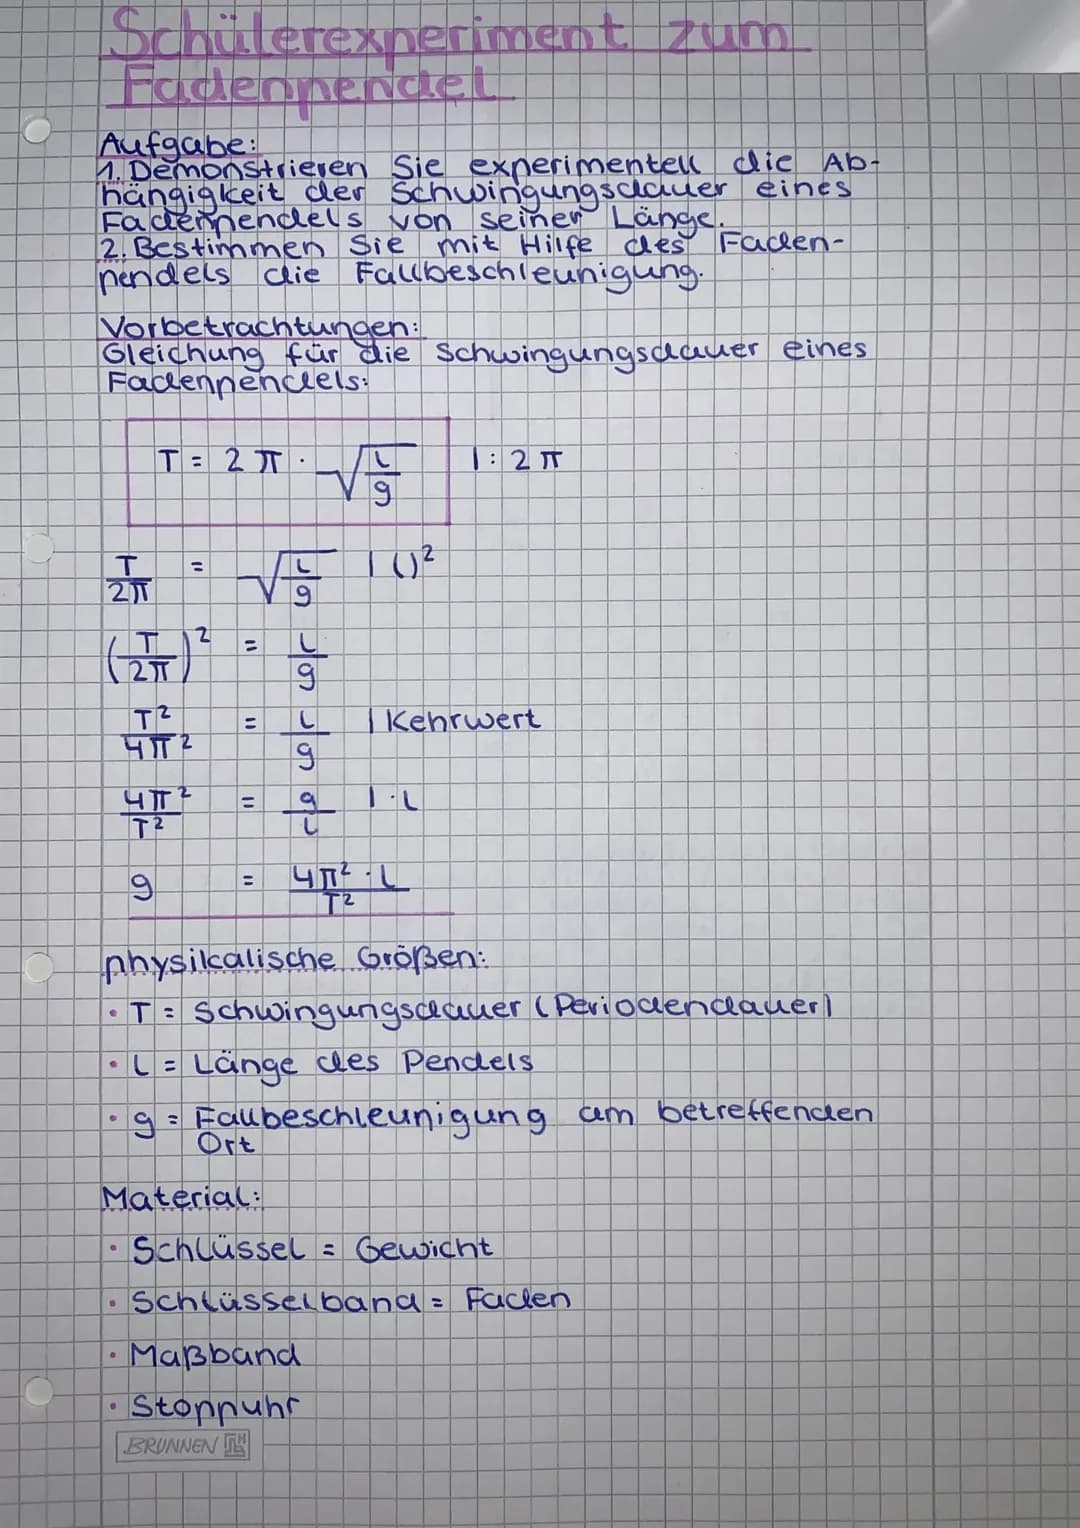 Schülerexperiment zum
Fadenpendel
Aufgabe:
1. Demonstrieren Sie experimentell die Ab-
hängigkeit der Schwingungsdauer eines
Fadenpendels von seiner Länge.
2. Bestimmen Sie mit Hilfe des Faden-
pendels die Fallbeschleunigung.
Vorbetrachtungen:
Gleichung für die Schwingungsdauer eines
Fadenpendels:
T = 2 π · √(l/g) | : 2 π
T/2π = √(l/g) | ()²
(T/2π)² = l/g
T²/4π² = l/g | Kehrwert
4π²/T² = g/l | · l
g = 4π² · l/T²
physikalische Größen:
• T = Schwingungsdauer (Periodendauer)
• l = Länge des Pendels
• g = Fallbeschleunigung am betreffenden
Ort
Material:
• Schlüssel = Gewicht
• Schlüsselband = Faden
• Maßband
• Stoppuhr
BRUNNEN